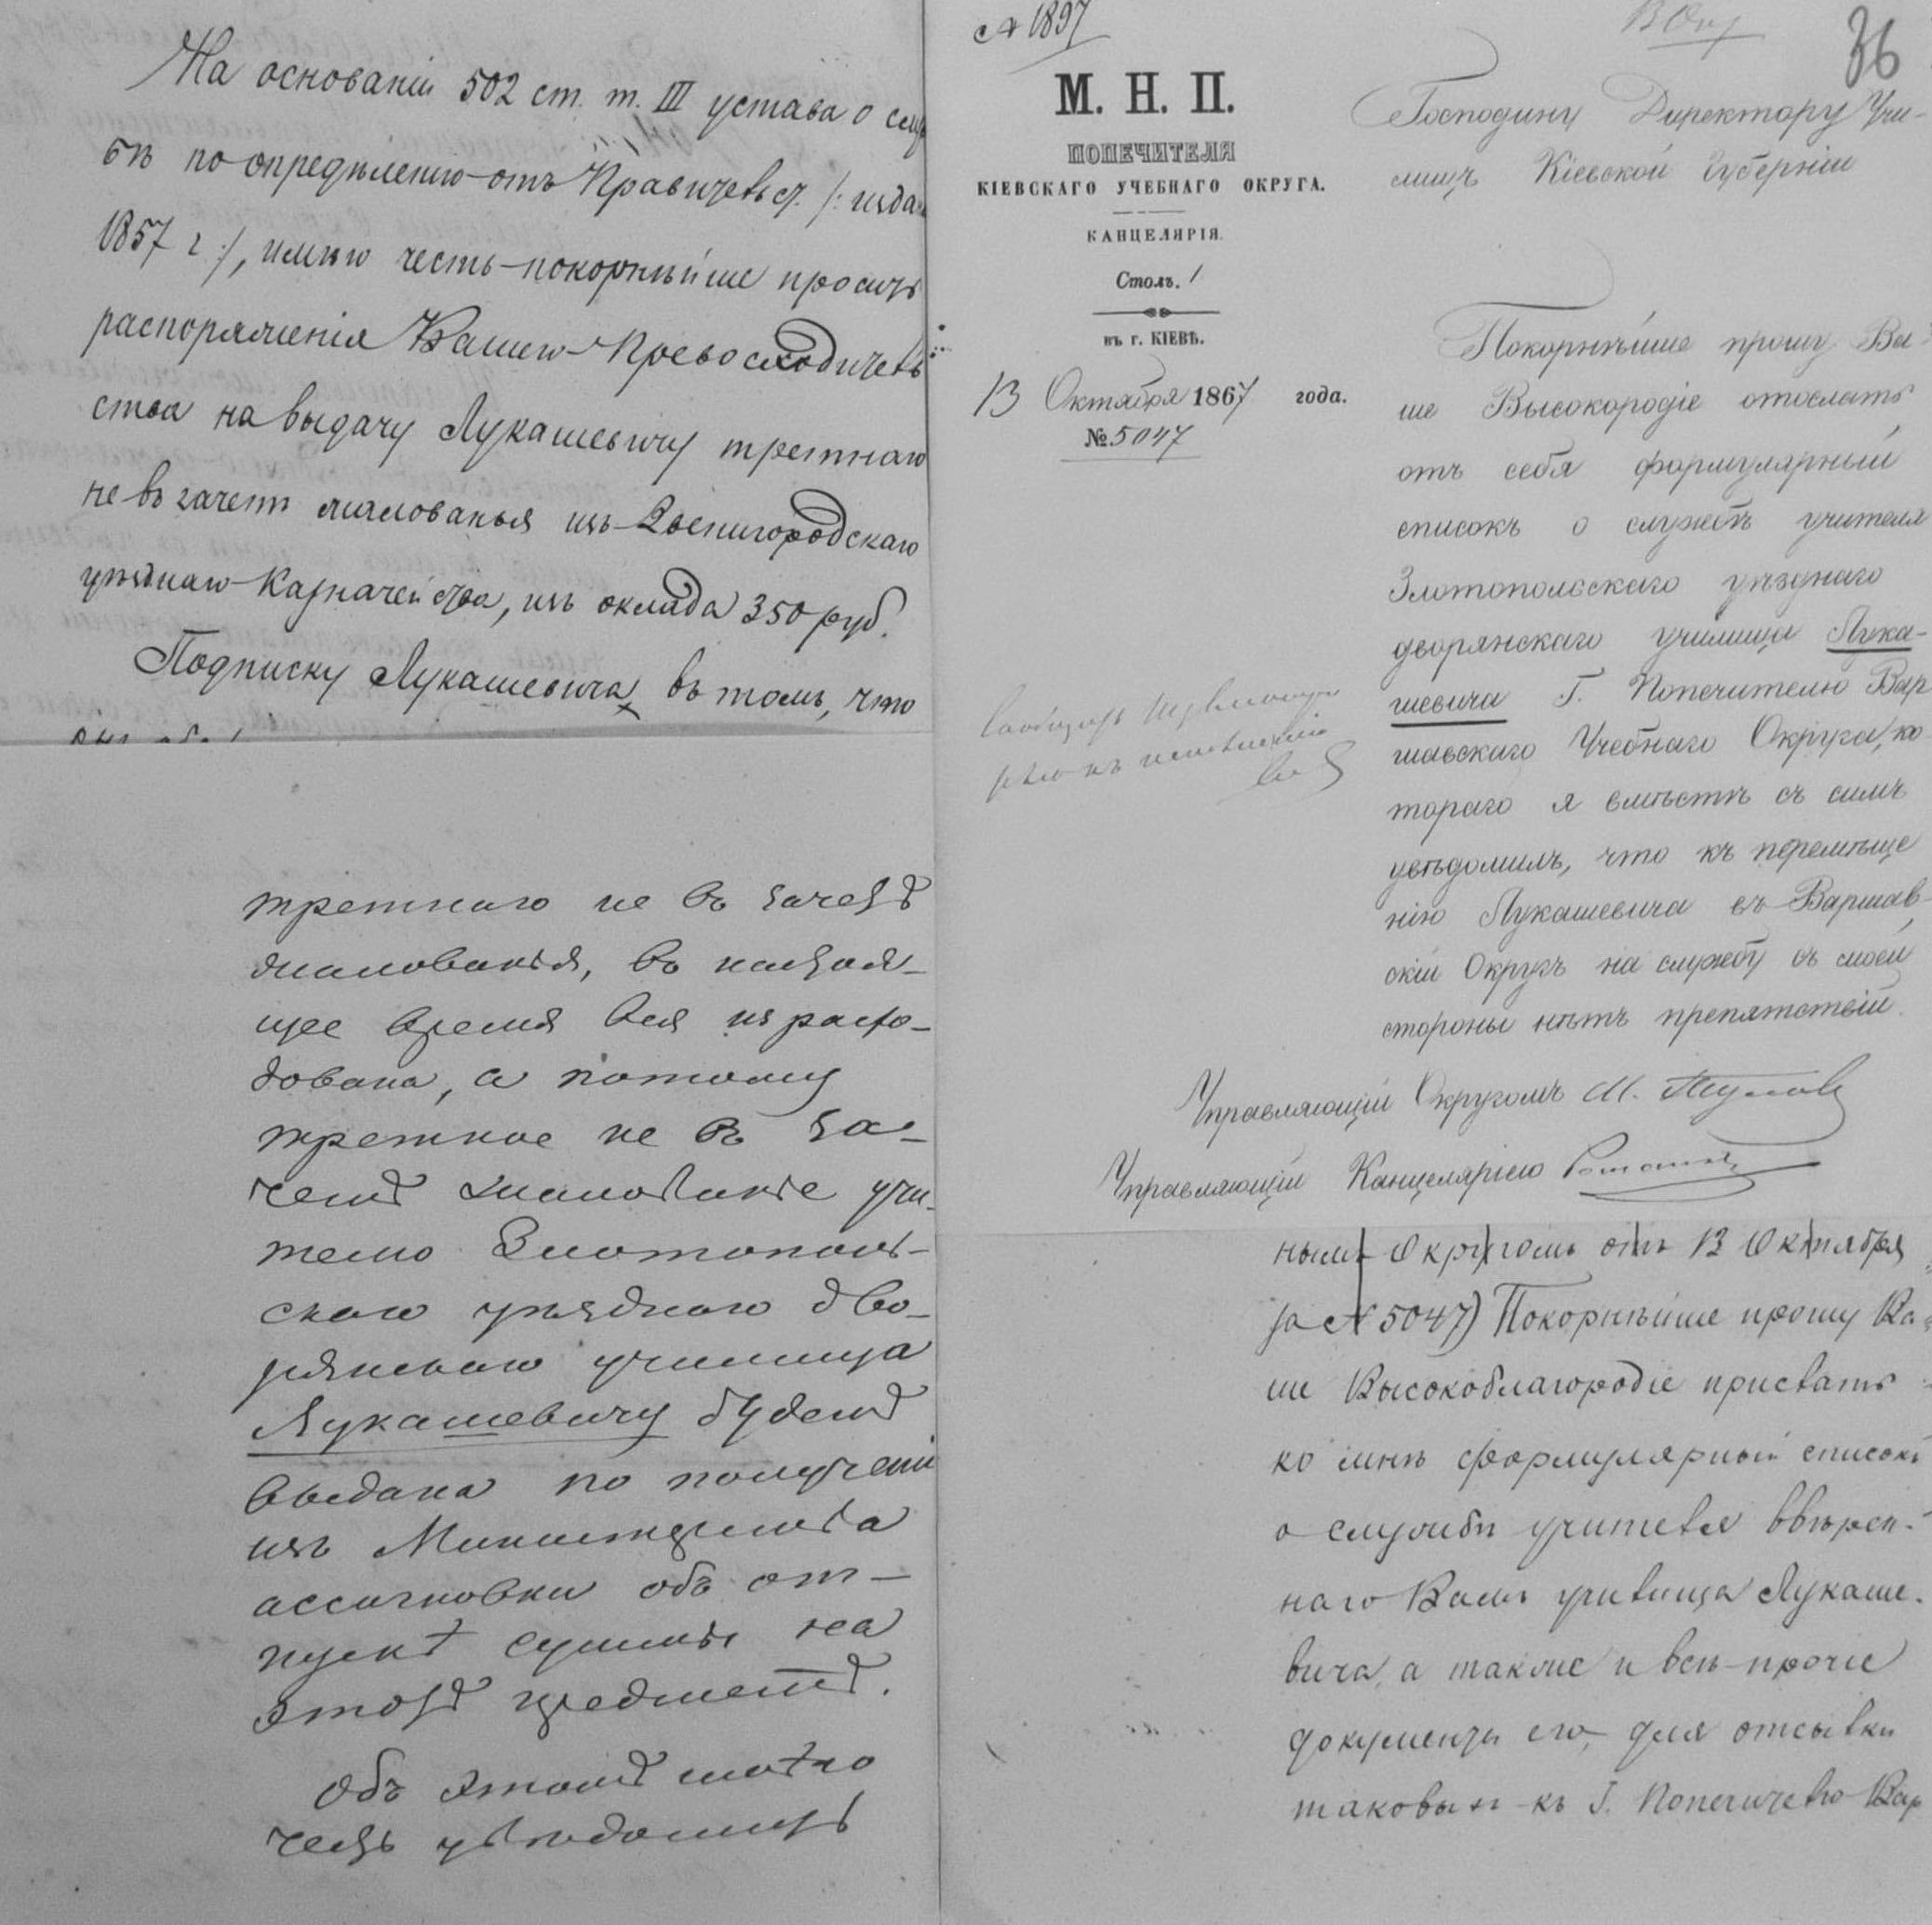 На основаніи 502 ст. т. III устава о служ
бѣ по опредѣленію отъ Правительст. /: изда:
1857 г :/, имѣю честь покорнѣйше просить
распоряженія Вашего Превосходитель
ства на выдачу Лукашевичу третнаго
не въ зачетъ жалованья изъ Звенигородскаго
уѣзднаго Казначейства, изъ оклада 350 руб.
Подписку Лукашевича въ томъ, что
третнаго не въ зачетъ
жалованья, въ настоя-
щее время вся израсхо-
дована, а потому
третное не въ за-
четъ жалованье учи-
телю Златополь-
скаго уѣзднаго дво-
рянскаго училища
Лукашевичу будетъ
выдана по полученіи
изъ Министерства
ассигновки объ от-
пускѣ суммы на
этотъ предметъ.
Объ этомъ
увѣдомить
№ 1897
36
М. Н. П.
ПОПЕЧИТЕЛЯ
КІЕВСКАГО УЧЕБНАГО ОКРУГА.
КАНЦЕЛЯРІЯ.
Столъ. 1
въ г. КІЕВѢ.
13 Октября 1867 года.
№ 5047
Господину Директору Учи-
лищъ Кіевской Губерніи
Покорнѣйше прошу Ва-
ше Высокородіе отослать
отъ себя формулярный
списокъ о службѣ учителя
Златопольскаго уѣзднаго
дворянскаго училища Лука-
шевича Г. Попечителю Вар
шавскаго Учебнаго Округа, ко
тораго я вмѣстѣ съ симъ
увѣдомилъ, что къ перемѣще
нію Лукашевича въ Варшав-
скій Округъ на службу съ моей
стороны нѣтъ препятствій.
Управляющій Округомъ М.
Управляющій Канцеляріею
нымъ Округомъ отъ 13 Октября
за № 5047) Покорнѣйше прошу Ва-
ше Высокоблагородіе прислать
ко мнѣ формулярный списокъ
о службѣ учителя ввѣрен-
наго Вамъ училища Лукаше-
вича, а также и всѣ прочіе
документы его, для отсылки
таковыхъ къ Г. Попечителю Вар